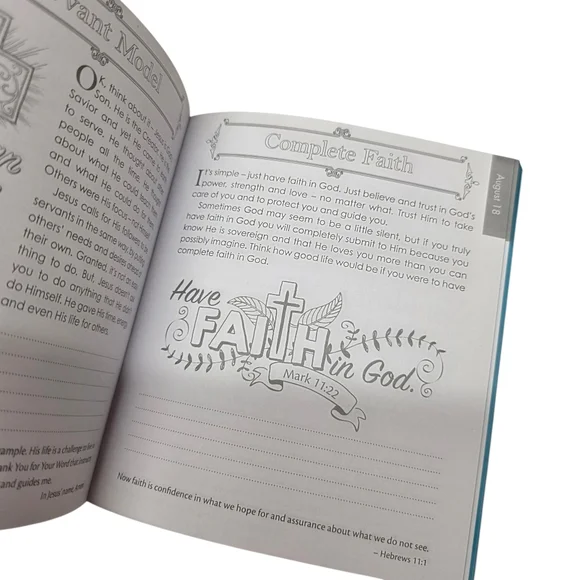 vant Model
OK, think about it – Jesus is God's
Son. He is the Creator, He is
Savior and yet He came to earth
to serve. He thought about
people all the time. He thought
about what He could teach them
and what He could do for them.
Others were His focus
Jesus calls for His followers to be
servants in the same way by putting
others' needs and desires ahead of
their own. Granted, it's not an easy
thing to do. But, Jesus doesn't ask
you to do anything that He didn't
do Himself. He gave His time, energy
and even His life for others.
ample. His life is a challenge to
ank You for Your Word that
and guides me.
In Jesus' name, Amen
Complete Faith
August 18
It's simple – just have faith in God. Just believe and trust in God's
power, strength and love – no matter what. Trust Him to take
care of you and to protect you and guide you.
Sometimes God may seem to be a little silent, but if you truly
have faith in God you will completely submit to Him because you
know He is sovereign and that He loves you more than you can
possibly imagine. Think how good life would be if you were to have
complete faith in God.
Have
FAITH
in God.
Mark 11:22
Now faith is confidence in what we hope for and assurance about what we do not see.
– Hebrews 11:1